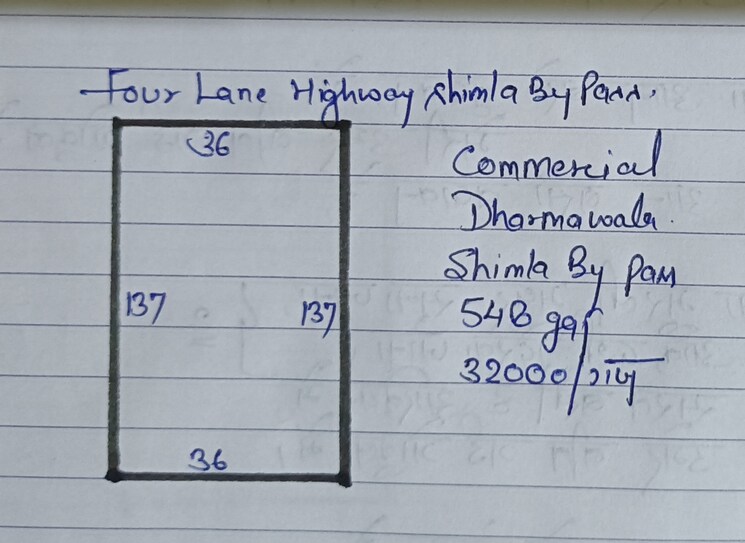 Four Lane Highway Shimla By Pass.
36
Commercial
Dharmawala.
Shimla By Pass
137
137
548 gaj
32000/गज
36